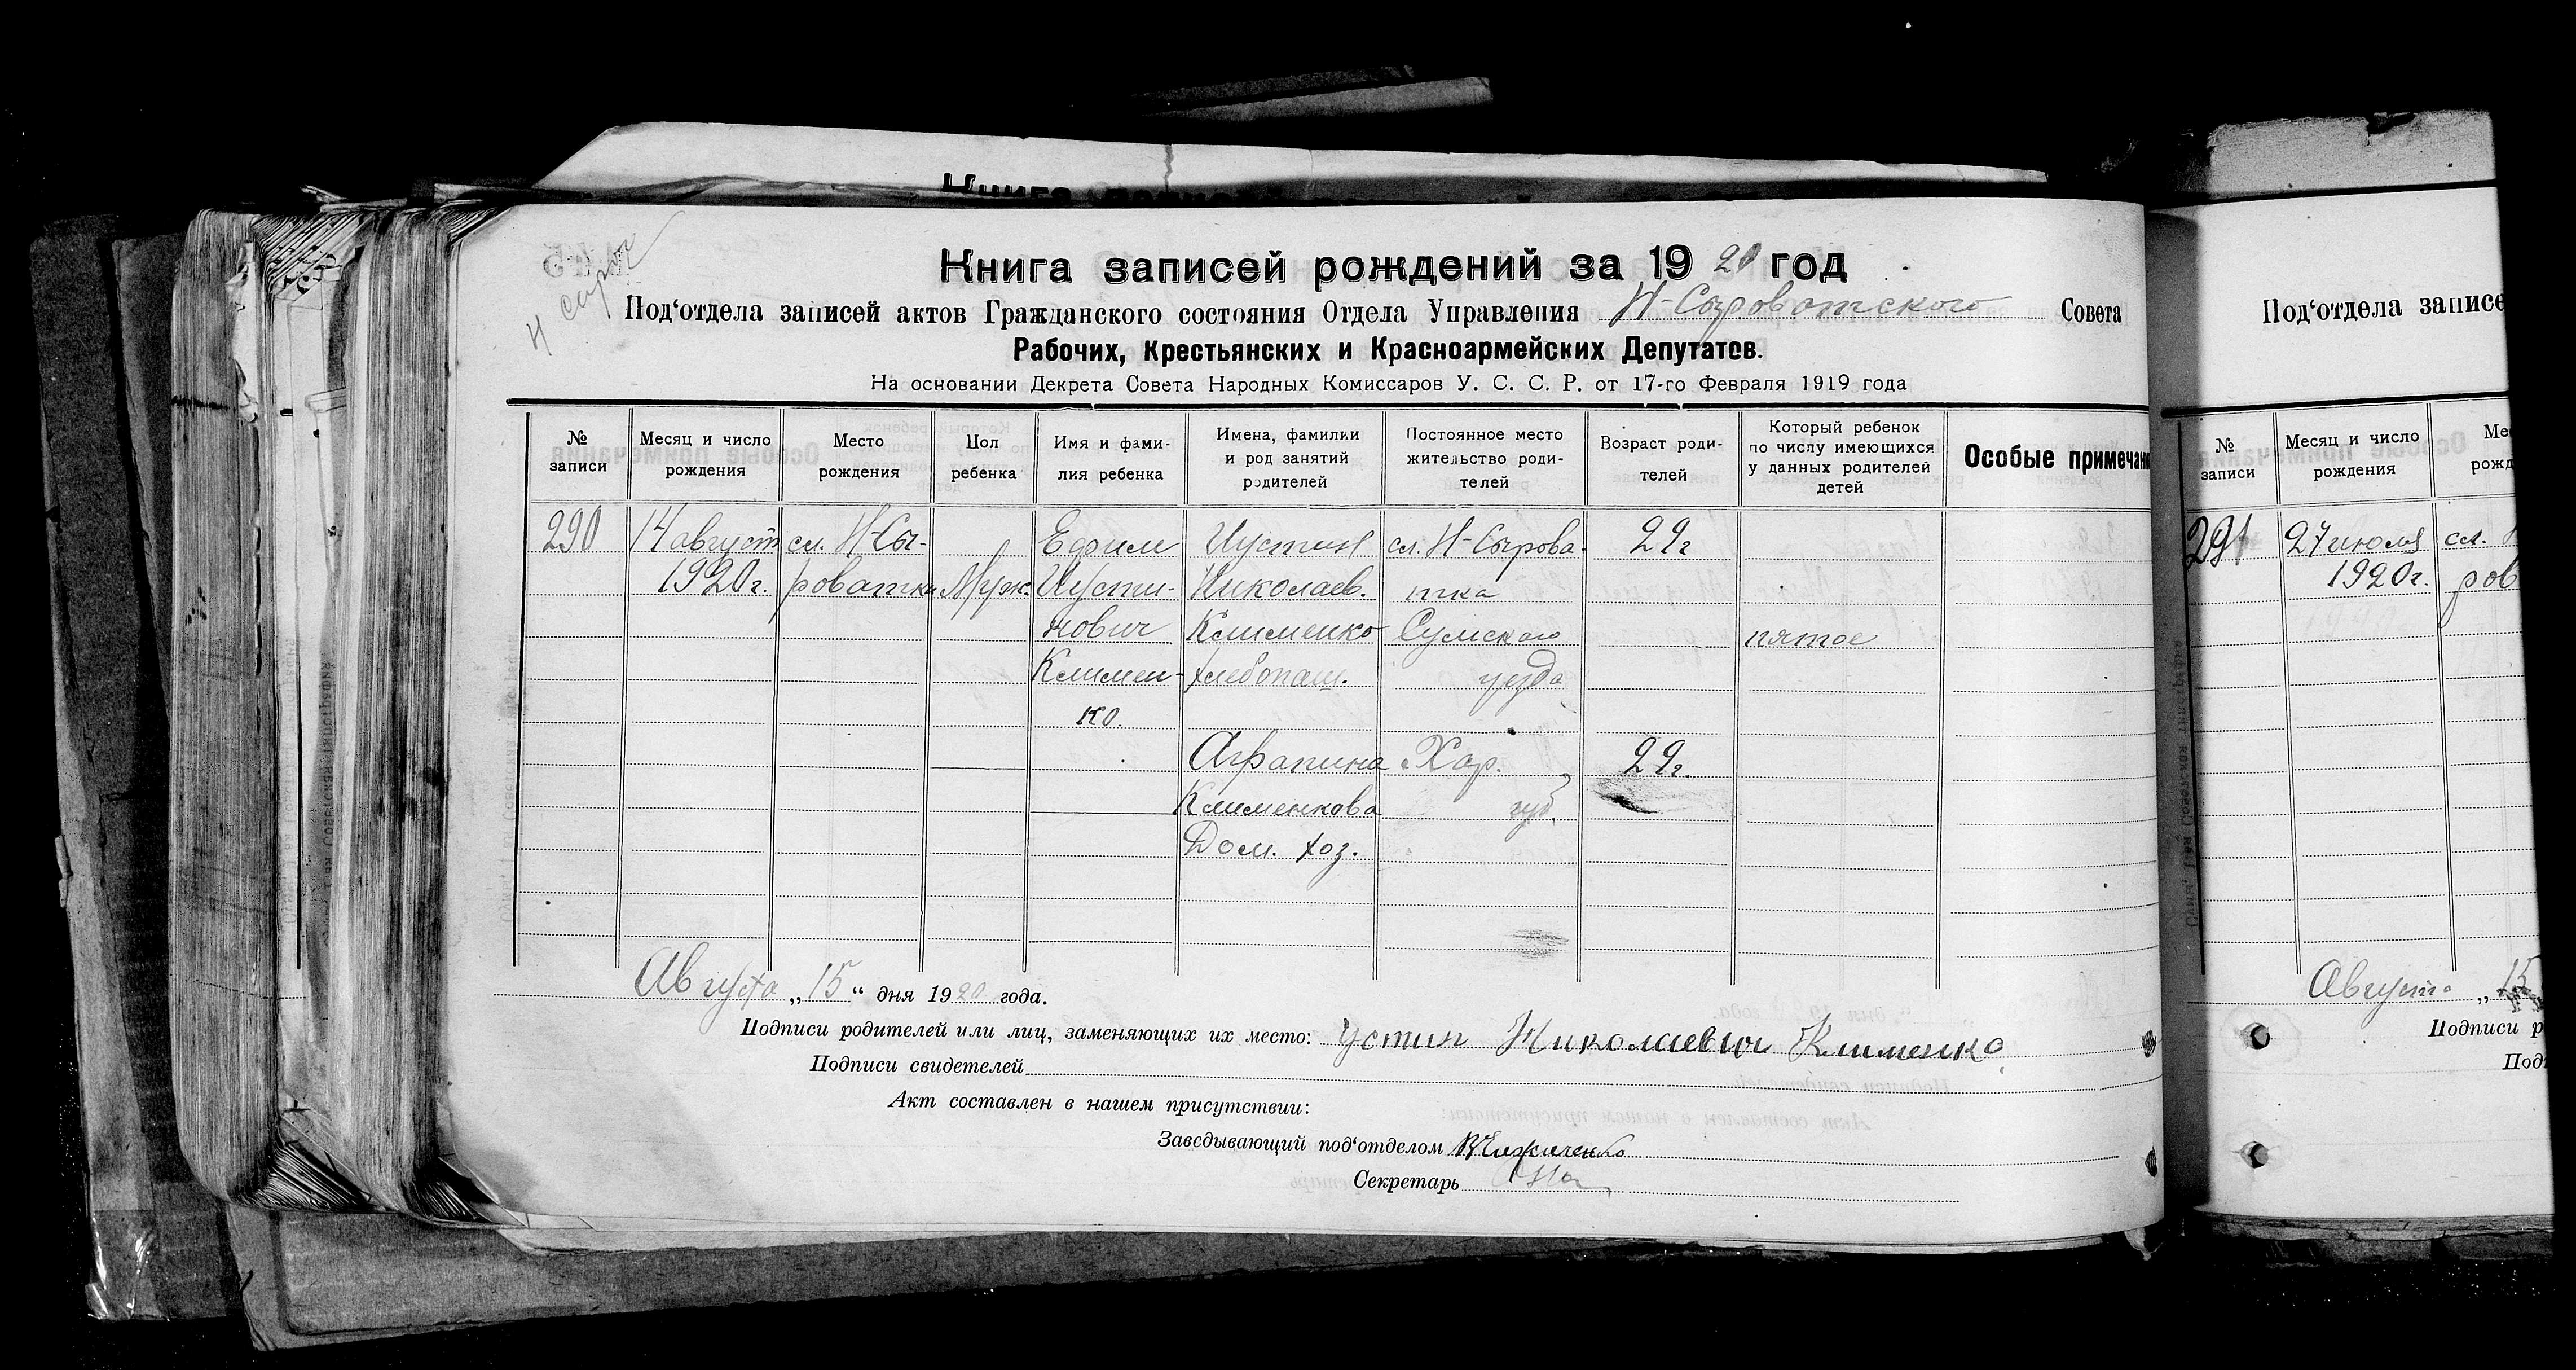 Книга записей рождений за 1920 год
Под‘отдела записей актов Гражданского состояния Отдела Управления Н-Сыроватского Совета
Рабочих, Крестьянских и Красноармейских Депутатов.
На основании Декрета Совета Народных Комиссаров У. С. С. Р. от 17-го Февраля 1919 года
№ записи
Месяц и число рождения
Место рождения
Пол ребенка
Имя и фами-
лия ребенка
Имена, фамилии
и род занятий
родителей
Постоянное место
жительство роди-
телей
Возраст роди-
телей
Который ребенок
по числу имеющихся
у данных родителей
детей
Особые примечани
290
14 август
1920 г.
сл. Н-Сы-
роватка
Муж.
Ефим
Иусти-
нович
Климен-
ко.
Иустин
Николаев.
Клименко
хлебопаш.
Аграпина
Клименкова
Дом. хоз.
сл. Н-Сырова-
тка
Сумского
уезда
Хар.
губ.
29 г
29 г.
пятое
Августа „15“ дня 1920 года.
Подписи родителей или лиц, заменяющих их место: Устин Николаевич Клименко
Подписи свидетелей
Акт составлен в нашем присутствии:
Заведывающий под‘отделом
Секретарь
Под‘отдела записе
№ записи
Месяц и число рождения
Ме
рожд
291
27 июля
1920 г.
сл.
ров
Августа „15
Подписи р
Под